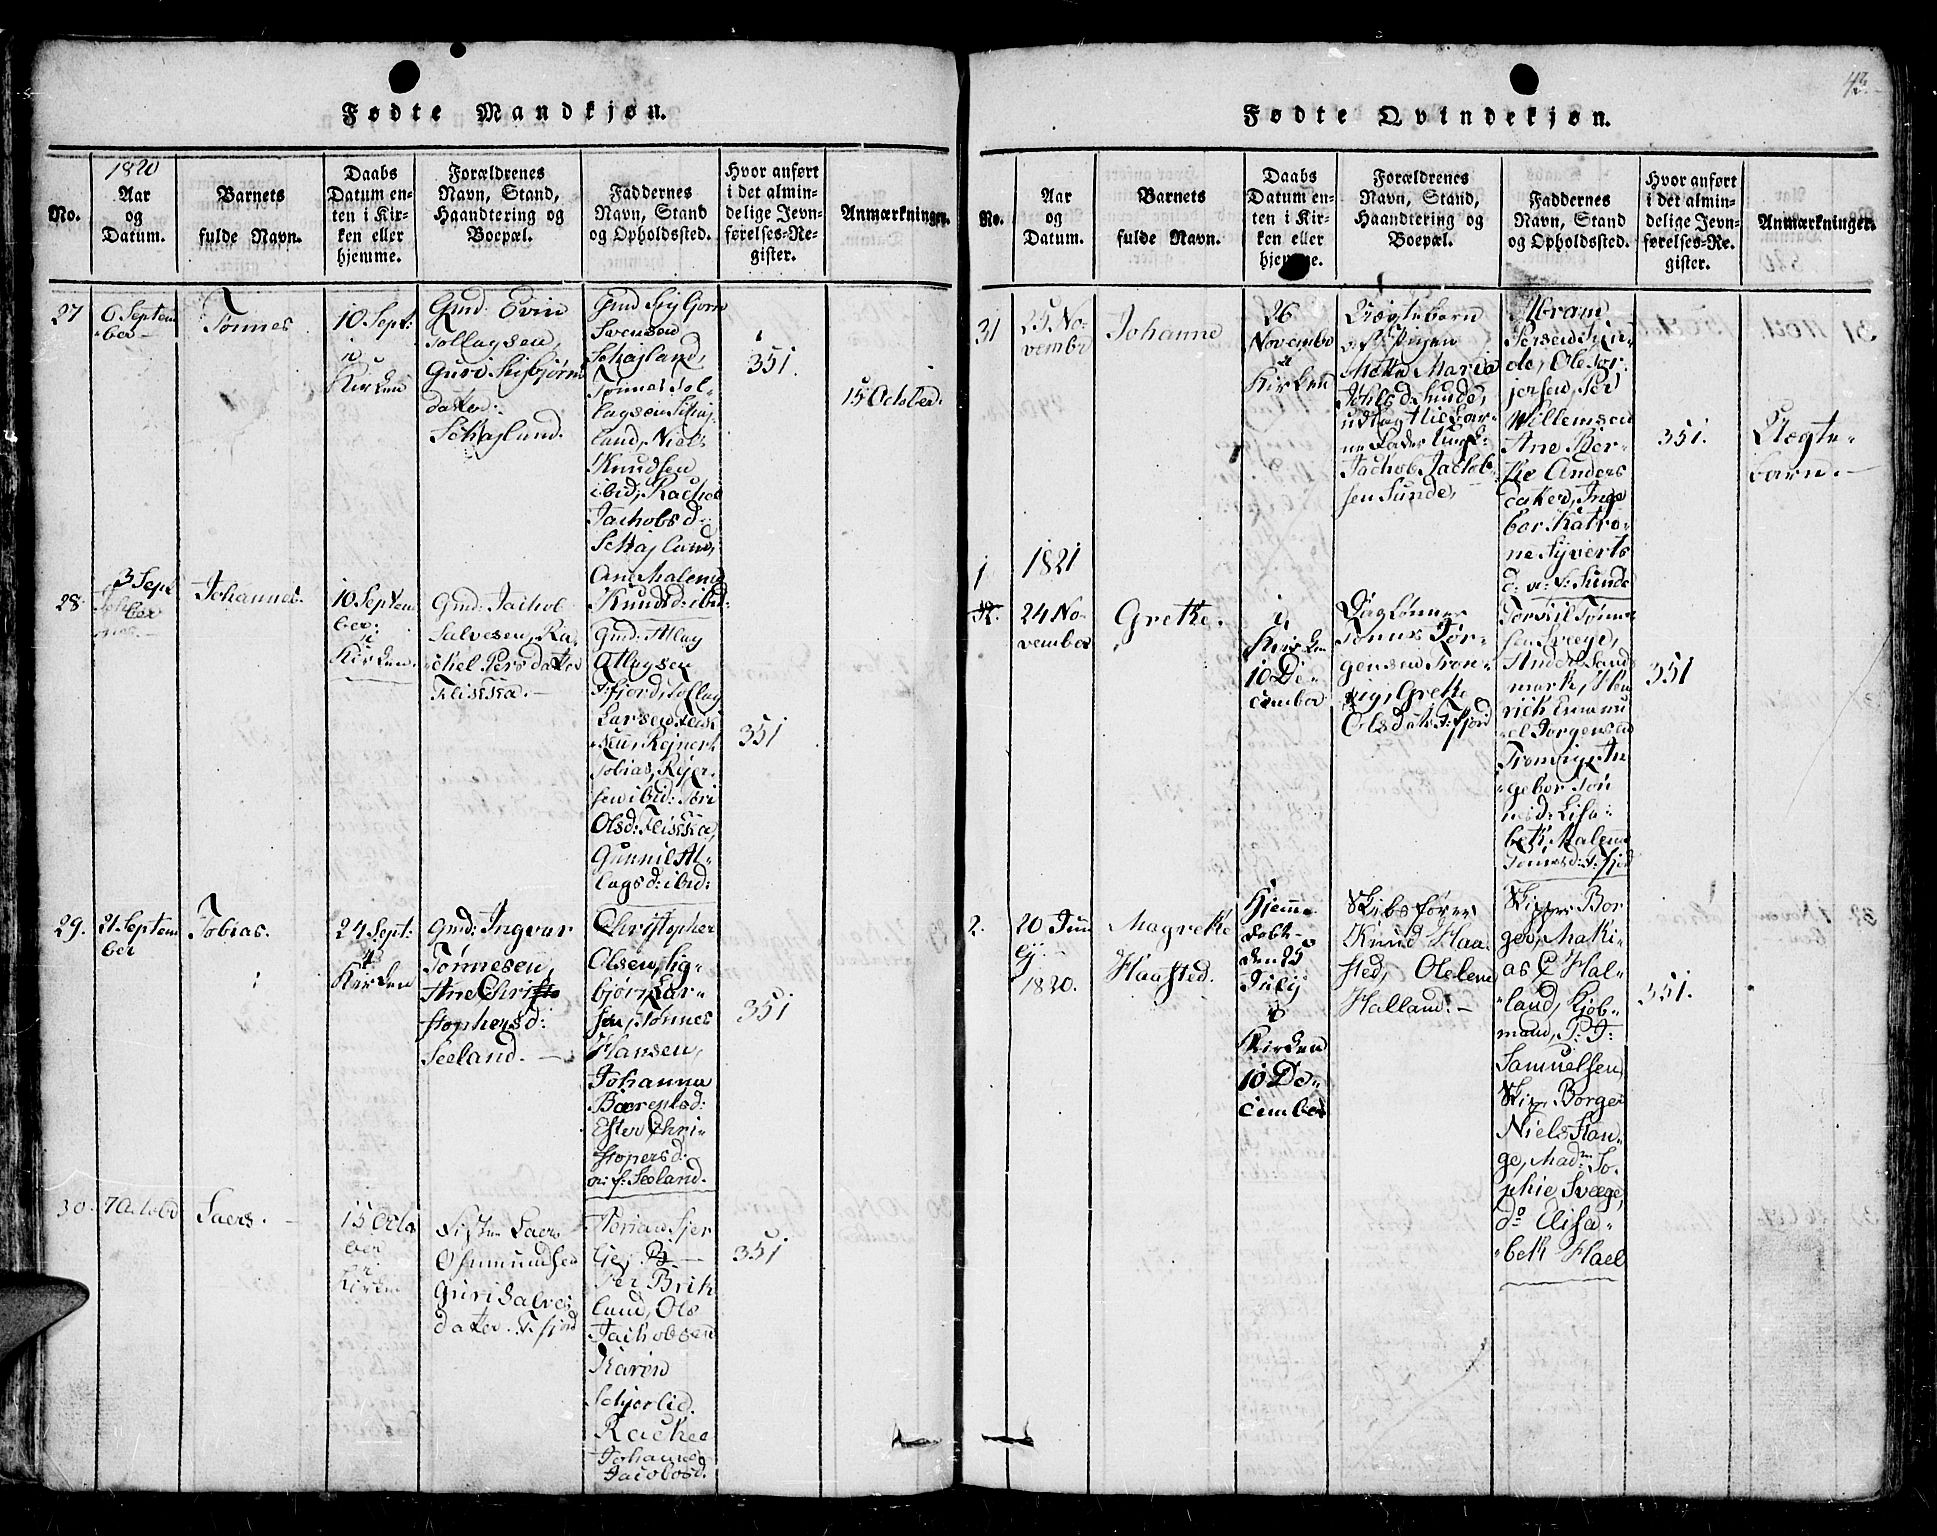 Fødte Mandkjøn.
1820
No.
Aar
og
Datum.
Barnets
fulde Navn.
Daabs
Datum en-
ten i Kir-
ken eller
hjemme.
Forældrenes
Navn, Stand,
Haandtering og
Boepæl.
Faddernes
Navn, Stand
og Opholdssted.
Hvor anført
i det almin-
delige Jevn-
førelses-Re-
gister.
Anmærkninger.
27
6 Septem
ber
Tønnes
10 Sept:
i
Kirken
Gmd: Evin
Tollagsen,
Guri Sigbjørns
dater:
Schajland.
Gmd Sigbjørn
Svensen
Schajland,
Tønnes Tol-
lagsen Schaj-
land, Niels
Knudsen
ibid, Rachel
Jachobsd:
Schajland,
Ane Malene
Knudsd: ibid:
351.
15 October.
28.
3 Sept
ber
Johannes.
10 Septem
ber.
i
Kirken.
Gmd: Jachob
Salvesen, Ra-
chel Persdater
Fleskea. —
Gmd: Atlag
Atlagsen
F:fjord, Tollag
Larsen Flesk
Rejnert
Tobias, Rejer-
sen ibid: Tori
Olsd: Fleskea,
Gunnil At-
lagsd: ibid:
351
29.
21 Septem
ber
Tobias.
24 Sept:
i
Kirken
Gmd: Ingvar
Tønnesen,
Ane Christo
stophersd:
Seeland. —
Christopher
Olsen, Sig-
bjørn Lar-
sen, Tønnes
Hansen,
Johanna
Bærentsd:
Ester Chri-
stopersd:
a: f: Seeland.
351
30.
7 Octobr
Saers. —
15 Octo
ber
i
Kirken
Saers
Osmundsen
Guri Salves
dater. F:fjord
Adrian Fjer
Per Brik
land, Ols
Jachobsen
Karen
Schjerlid.
Rachel
Johannes
Jacobsd.
351
43.
Fødte Qvindekjøn.
No.
Aar
og
Datum.
Barnets
fulde Navn.
Daabs
Datum en-
ten i Kir-
ken eller
hjemme.
Forældrenes
Navn, Stand,
Haandtering og
Boepæl.
Faddernes
Navn, Stand
og Opholdssted.
Hvor anført
i det almin-
delige Jevn-
førelses-Re-
gister.
Anmærkninger.
31
25 No-
vember
Johanne
26
November
i
Kirken
Uægtebarn
af Pigen
Mette Maria
Sunde,
udlagt til Bar-
ne Fader Ungk:
Jachob Jachob-
sen Sunde,
Abram
Persen Sun-
de, Ole Tor-
jersen, Per
Willemsen
Ane Ber-
the Anders
dater, Inge
bor Katro-
ne Syverts
d: a: f: Sunde
351.
Uægte-
barn. —
1821
1
32.
24 No-
vember
Grethe.
i
Kirken
10 De-
cember
Daglønner
Tønnes Tør-
gensen Tron-
vig, Grethe
Olsdat: F:fjord
Torkil Tønne
sen Svege,
Ander Sand
mark, Hen
rich Emanu
el Jørgensen
Tronvig, In
gebor Tøn
nesd: Elisa-
beth Malene
Tønnesd: F:fjord
351
2.
20 Jun
ij —
1820.
Magrethe
Haasted.
Hjemme
døbt
den 25
Julij
i
Kirken
10 De-
cember
Skibsfører
Knud Haa-
sted, Olelene
Halland. —
Skipper Bor
ges, Maki-
as C Hal-
land, Kjøb-
mand, P: T:
Samuelsen,
Skip Borge
Niels Han-
ge, Madm So-
phie Svege,
do Elisa-
beth Hael
351.